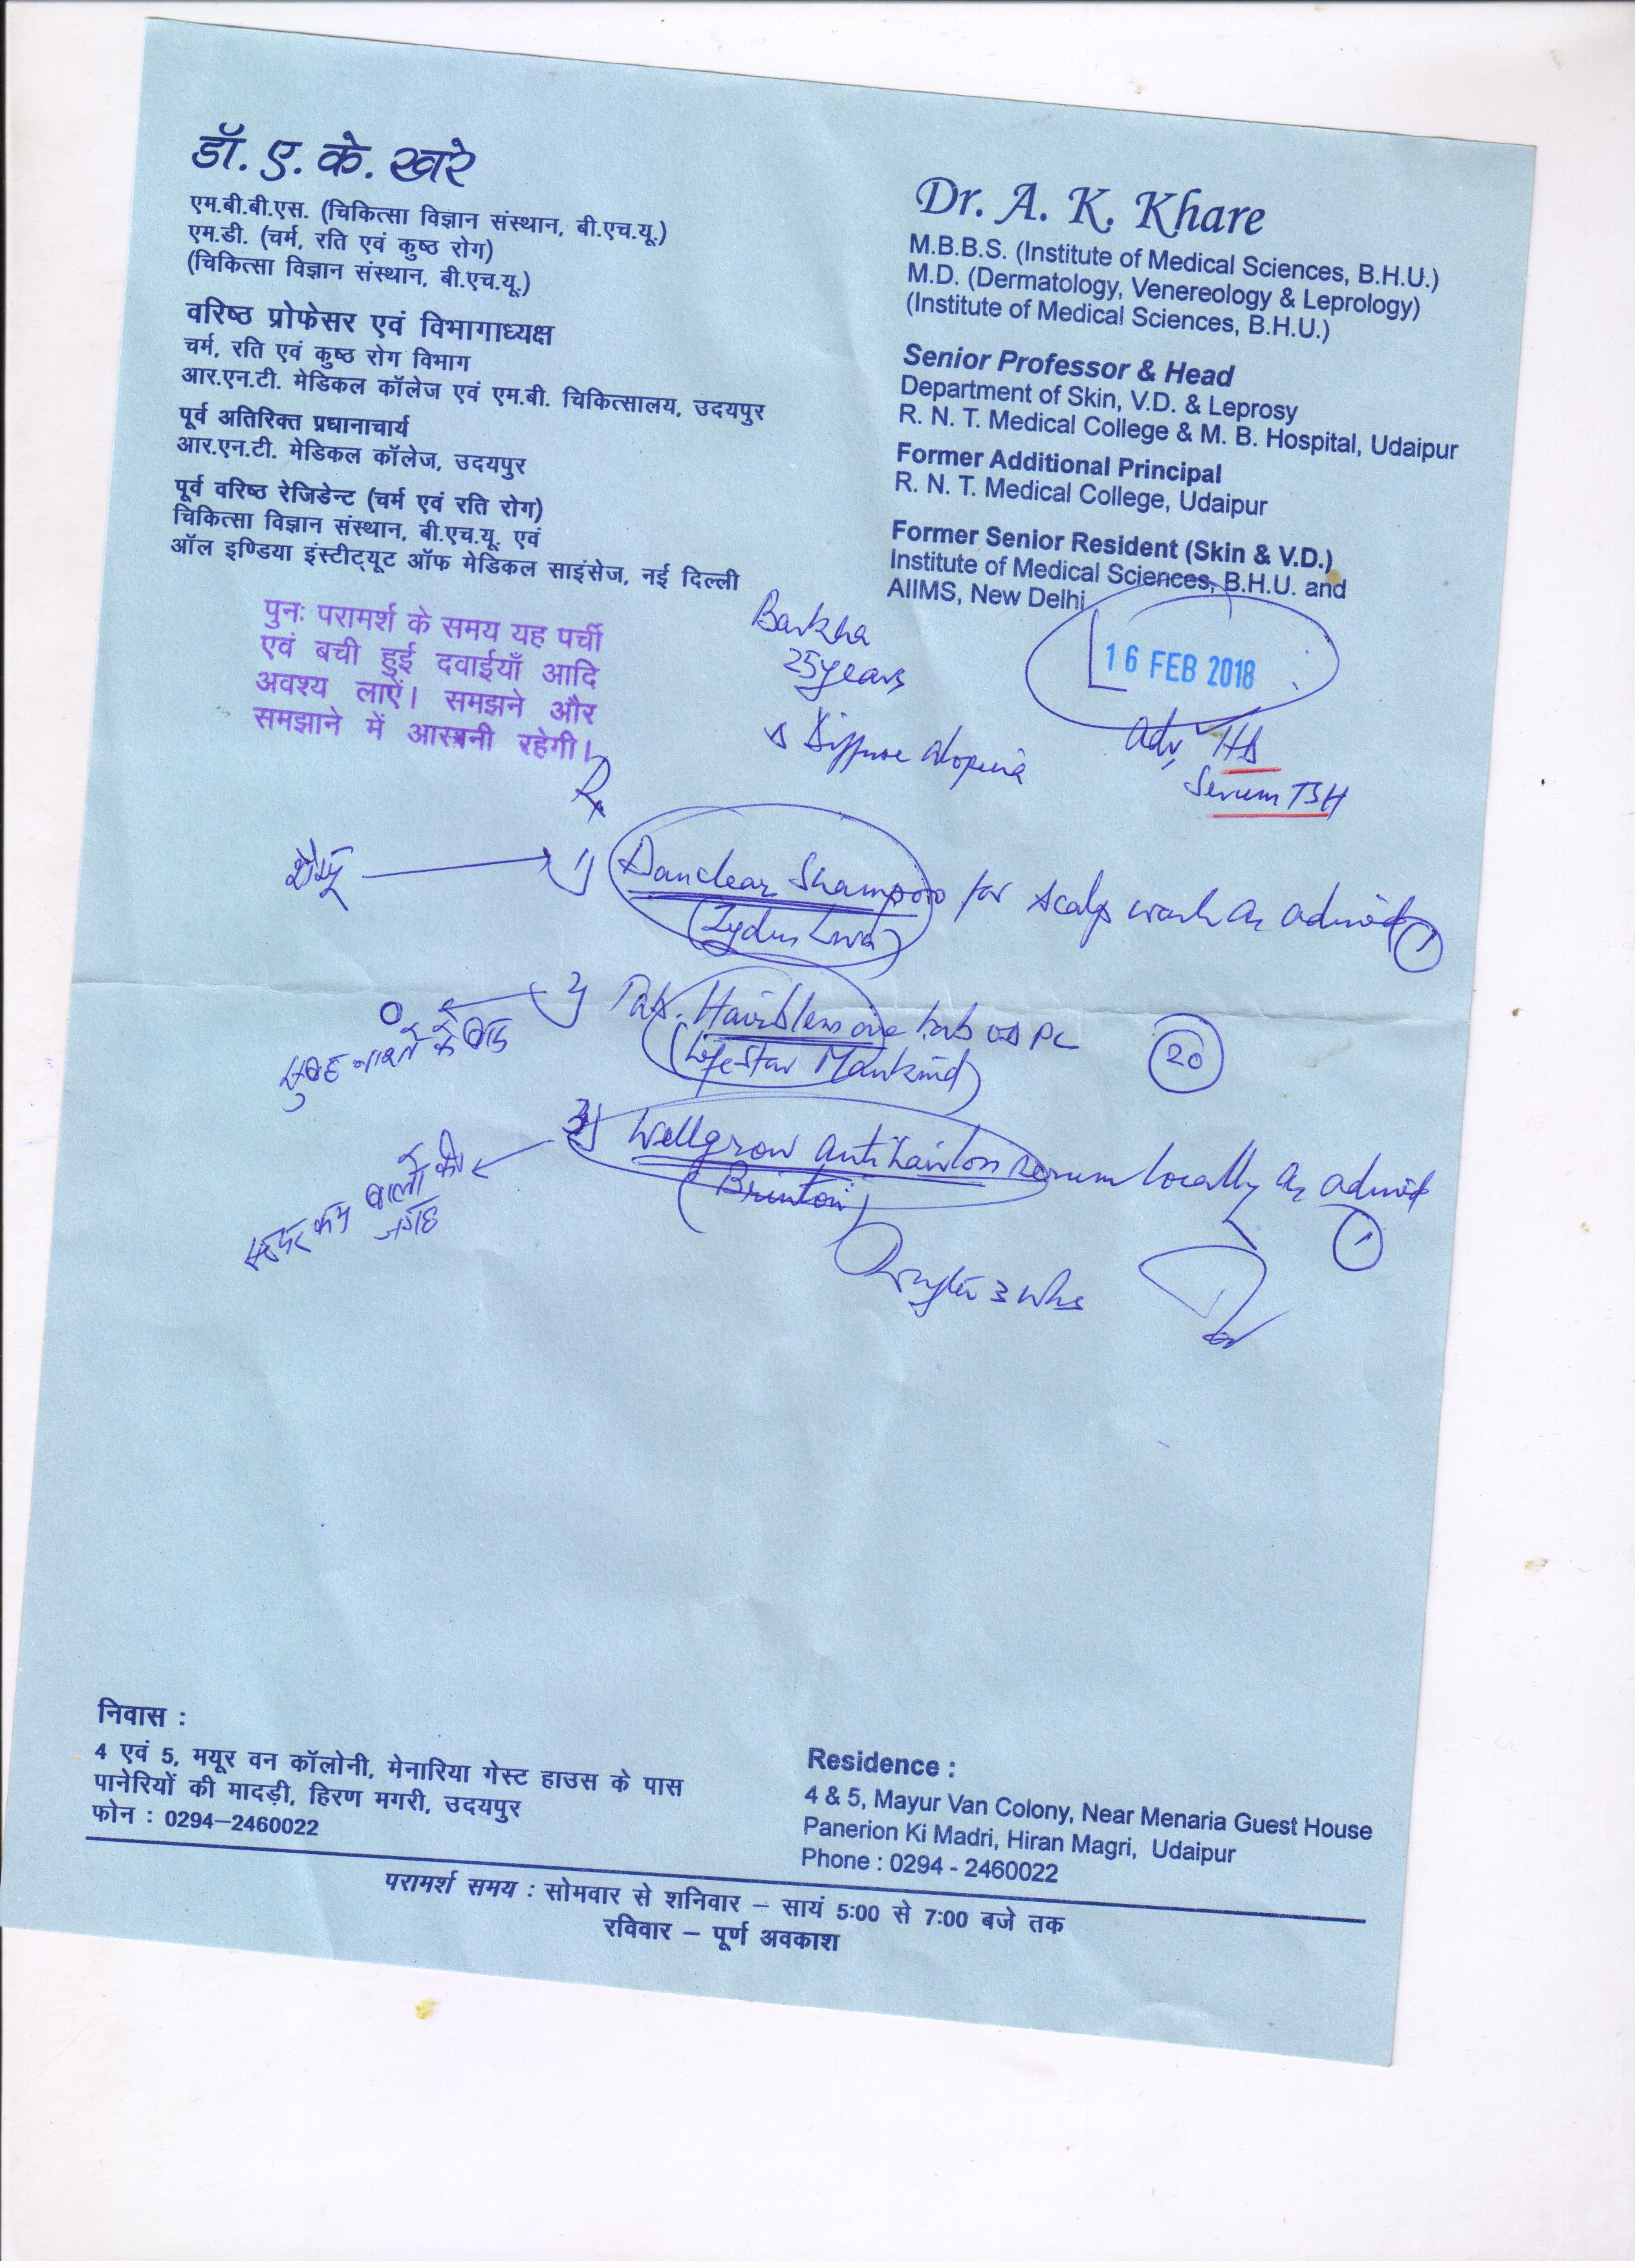 डॉ. ए. के. खरे
एम.बी.बी.एस. (चिकित्सा विज्ञान संस्थान, बी.एच.यू.)
एम.डी. (चर्म, रति एवं कुष्ठ रोग)
(चिकित्सा विज्ञान संस्थान, बी.एच.यू.)
वरिष्ठ प्रोफेसर एवं विभागाध्यक्ष
चर्म, रति एवं कुष्ठ रोग विभाग
आर.एन.टी. मेडिकल कॉलेज एवं एम.बी. चिकित्सालय, उदयपुर
पूर्व अतिरिक्त प्रधानाचार्य
आर.एन.टी. मेडिकल कॉलेज, उदयपुर
पूर्व वरिष्ठ रेजिडेन्ट (चर्म एवं रति रोग)
चिकित्सा विज्ञान संस्थान, बी.एच.यू. एवं
ऑल इण्डिया इंस्टीट्यूट ऑफ मेडिकल साइंसेज, नई दिल्ली
Dr. A. K. Khare
M.B.B.S. (Institute of Medical Sciences, B.H.U.)
M.D. (Dermatology, Venereology & Leprology)
(Institute of Medical Sciences, B.H.U.)
Senior Professor & Head
Department of Skin, V.D. & Leprosy
R. N. T. Medical College & M. B. Hospital, Udaipur
Former Additional Principal
R. N. T. Medical College, Udaipur
Former Senior Resident (Skin & V.D.)
Institute of Medical Sciences, B.H.U. and
AIIMS, New Delhi
पुनः परामर्श के समय यह पर्ची
एवं बची हुई दवाईयाँ आदि
अवश्य लाऐं। समझने और
समझाने में आसानी रहेगी।
Barkha
25 years
16 FEB 2018
Diffuse alopecia
Adv,
Serum TSH
Rx
शैम्पू
1) Danclear Shampoo for scalp wash as advised 1
(Zydus
2) Tab. Hairbless one tab OD PC 20
(Lifestar Mankind)
सुबह नाश्ते के बाद
3) Wellgrow antihairloss serum locally as advised 1
(Brinton)
कम बालों की
जगह
3 wks
निवास :
4 एवं 5, मयूर वन कॉलोनी, मेनारिया गेस्ट हाउस के पास
पानेरियों की मादड़ी, हिरण मगरी, उदयपुर
फोन : 0294–2460022
Residence :
4 & 5, Mayur Van Colony, Near Menaria Guest House
Panerion Ki Madri, Hiran Magri, Udaipur
Phone : 0294 - 2460022
परामर्श समय : सोमवार से शनिवार – सायं 5:00 से 7:00 बजे तक
रविवार – पूर्ण अवकाश